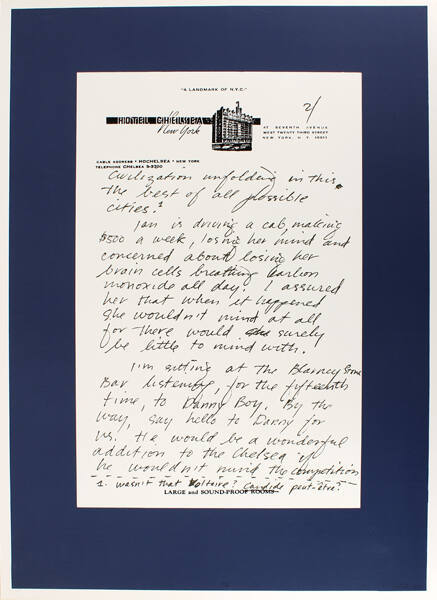 "A LANDMARK OF N.Y.C."
2/
HOTEL CHELSEA
New York
AT SEVENTH AVENUE
WEST TWENTY THIRD STREET
NEW YORK, N. Y. 10011
CABLE ADDRESS • HOCHELSEA • NEW YORK
TELEPHONE CHELSEA 3-3700
Civilization unfolding in this,
the best of all possible
cities.¹
Jan is driving a cab, making
$500 a week, losing her mind and
concerned about losing her
brain cells breathing carbon
monoxide all day. I assured
her that when it happened
she wouldn't mind at all
for there would surely
be little to mind with.
I'm sitting at The Blarney Stone
Bar listening, for the fifteenth
time, to Danny Boy. By the
way, say hello to Danny for
us. He would be a wonderful
addition to the Chelsea if
he wouldn't mind the competition
1. wasn't that Voltaire? Candide peut-être?
LARGE and SOUND-PROOF ROOMS